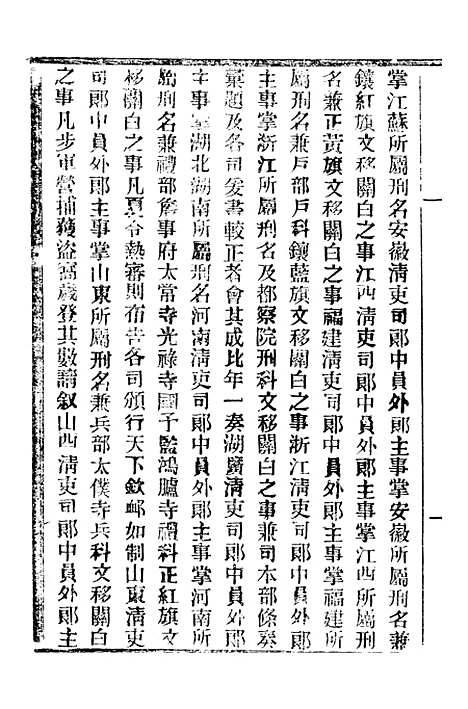 掌江蘇所屬刑名安徽淸吏司郞中員外郞主事掌安徽所屬刑名兼
鑲紅旗文移關白之事江西淸吏司郞中員外郞主事掌江西所屬刑
名兼正黃旗文移關白之事福建淸吏司郞中員外郞主事掌福建所
屬刑名兼戶部戶科鑲藍旗文移關白之事浙江淸吏司郞中員外郞
主事掌浙江所屬刑名及都察院刑科文移關白之事兼司本部條奏
彙題及各司委書較正者會其成比年一奏湖廣淸吏司郞中員外郞
主事掌湖北湖南所屬刑名河南淸吏司郞中員外郞主事掌河南所
屬刑名兼禮部詹事府太常寺光祿寺國子監鴻臚寺禮科正紅旗文
移關白之事凡夏令熱審則布吿各司頒行天下欽䘏如制山東淸吏
司郞中員外郞主事掌山東所屬刑名兼兵部太僕寺兵科文移關白
之事凡步軍營捕獲盜竊歲登其數請叙山西淸吏司郞中員外郞主